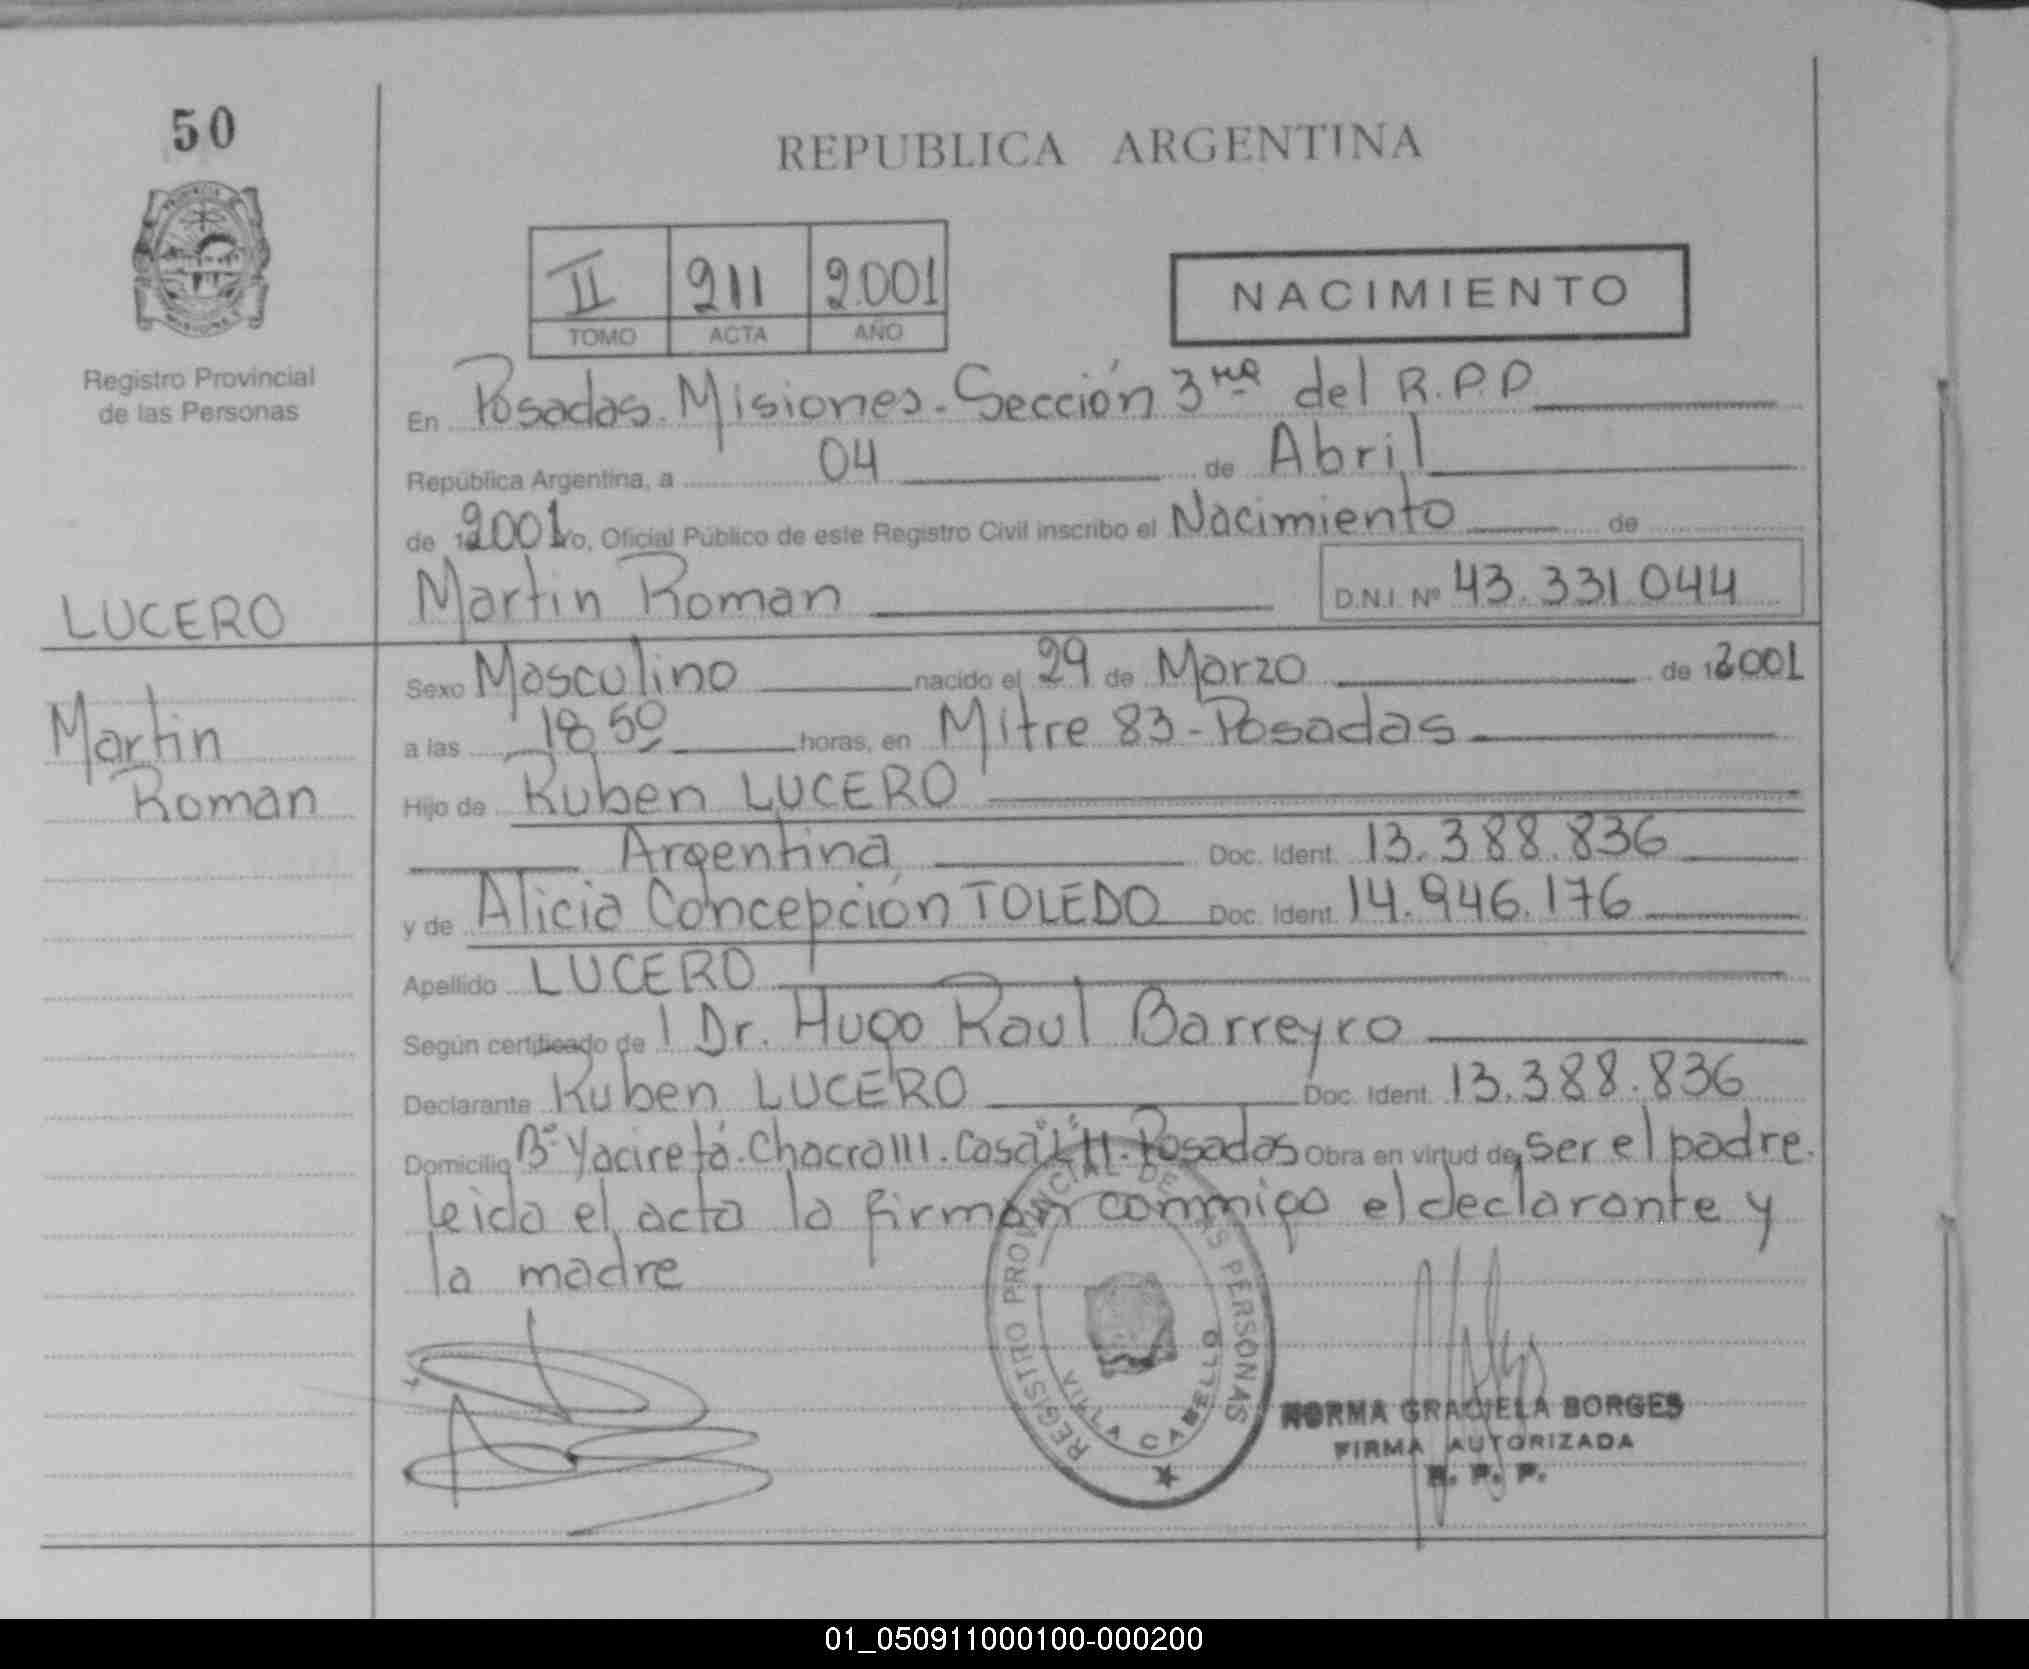 50
REPUBLICA ARGENTINA
II 211 2.001
TOMO ACTA AÑO
NACIMIENTO
Registro Provincial
de las Personas
En Posadas. Misiones. Sección 3ra del R.P.P
República Argentina, a 04 de Abril
de 2001 yo, Oficial Público de este Registro Civil inscribo el Nacimiento de
LUCERO Martin Roman D.N.I. Nº 43.331.044
Sexo Masculino nacido el 29 de Marzo de 2001
Martin a las 18,50 horas, en Mitre 83 - Posadas
Roman Hijo de Ruben LUCERO
Argentina Doc. Ident. 13.388.836
y de Alicia Concepción TOLEDO Doc. Ident. 14.946.176
Apellido LUCERO
Según certificado de l Dr. Hugo Raul Barreyro
Declarante Ruben LUCERO Doc. Ident. 13.388.836
Domicilio Bº Yaciretá. Chacra 111. Casa Posadas Obra en virtud de ser el padre.
leida el acta la firman conmigo el declarante y
la madre
REGISTRO PROVINCIAL DE LAS PERSONAS
VILLA CABELLO
NORMA GRACIELA BORGES
FIRMA AUTORIZADA
R. P. P.
01_050911000100-000200